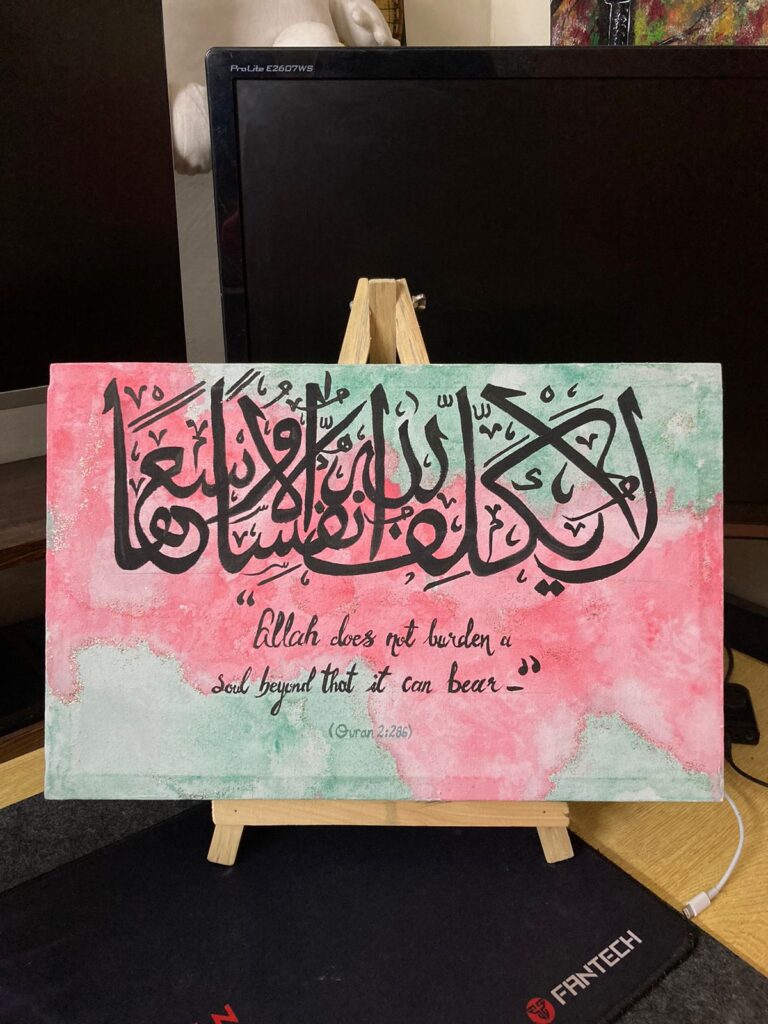 ProLite E2607WS
لا يكلف الله نفسا إلا وسعها
“Allah does not burden a
soul beyond that it can bear –”
(Quran 2:286)
FANTECH